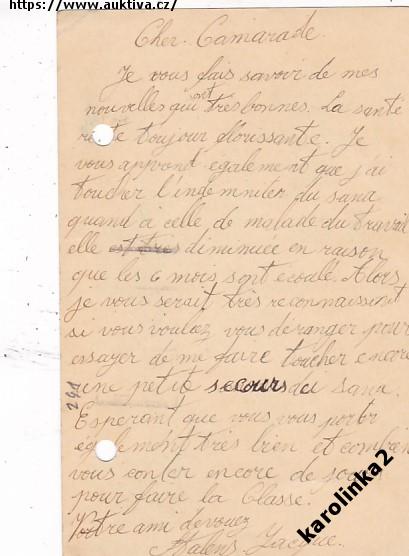 https://www.auktiva.cz/
Cher. Camarade.
Je vous fais savoir de mes
nouvelles qui ont très bonnes. La santé
reste toujour florissante. Je
vous apprond également que j'ai
toucher l'indemniter du sana
quand à celle de malade du travail
elle est très diminuee en raison
que les 6 mois sont ecoulé. Alors
je vous serait très reconnaissant
si vous vouliez vous déranger pour
essayer de me faire toucher encore
une petit secours du sana.
241
Esperant que vous vous porter
également très bien et combien
vous conter encore de jours
pour faire la Classe.
Votre ami devouez
Jacque.
karolinka2